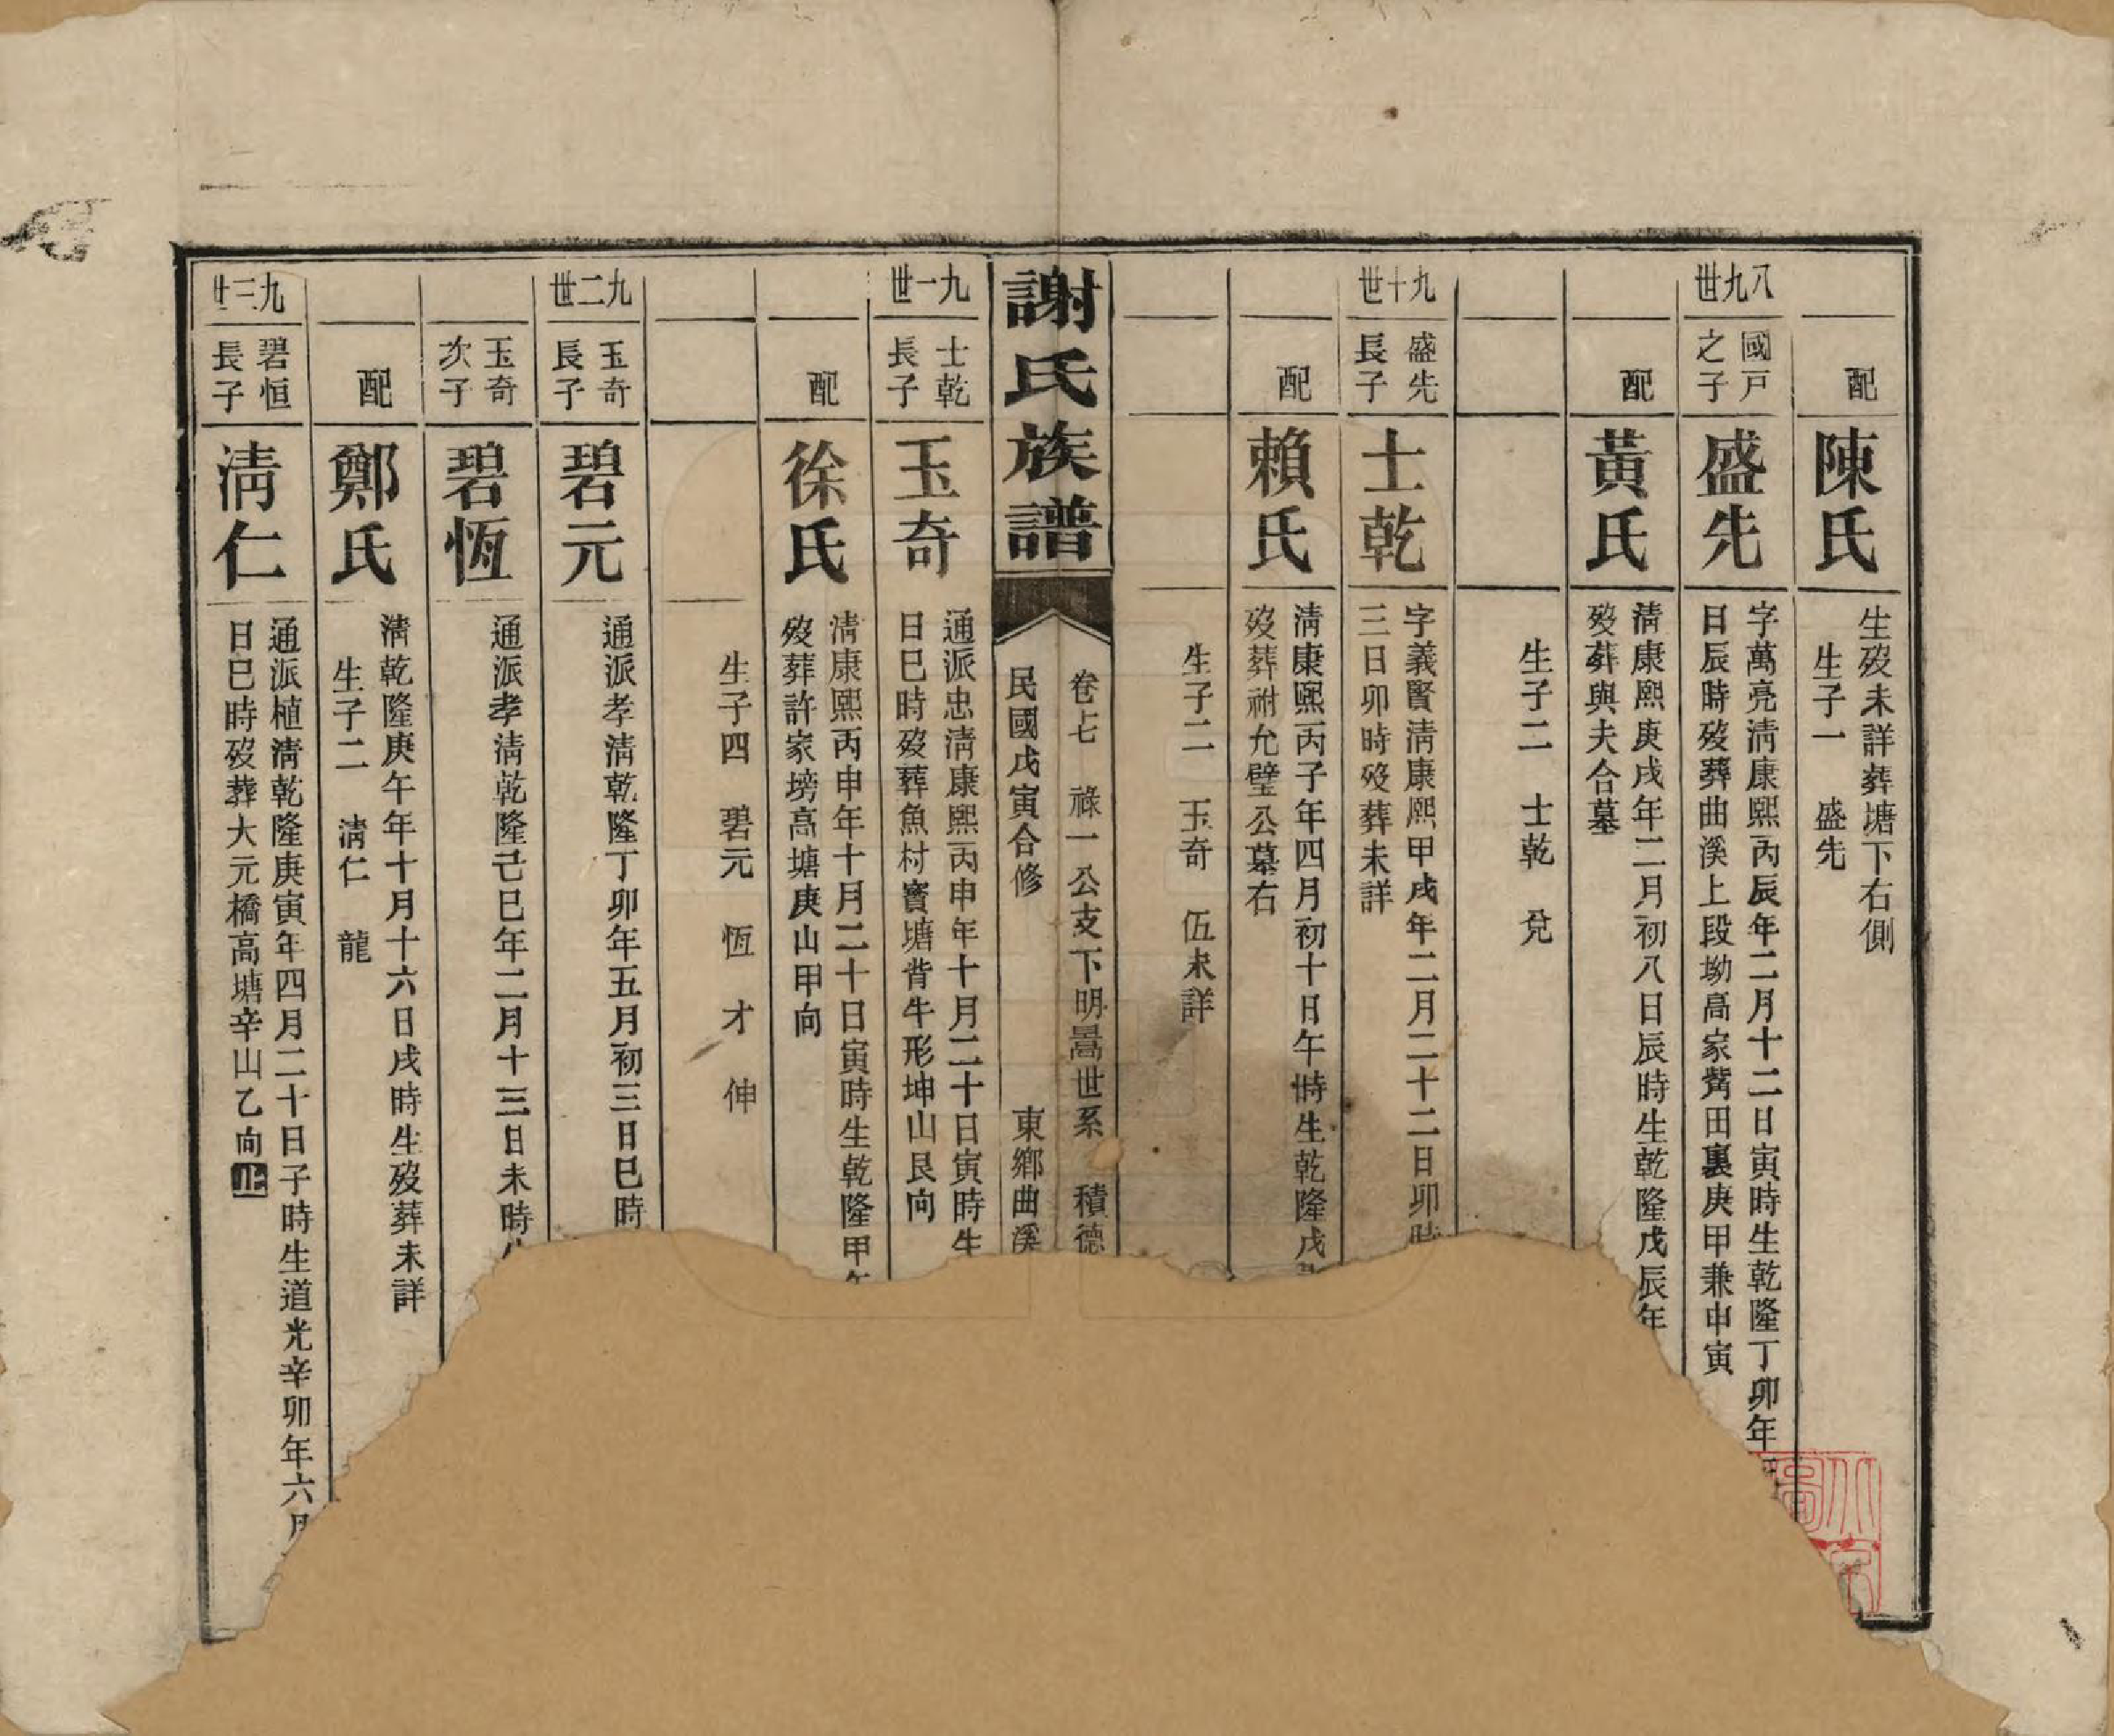 配
陳氏
生歿未詳葬塘下右側
生子一　盛先
八九世
國戸
之子
盛先
字萬亮淸康熙丙辰年二月十二日寅時生乾隆丁卯年
日辰時歿葬曲溪上段坳高家觜田裏庚甲兼申寅
配
黃氏
淸康熙庚戌年二月初八日辰時生乾隆戊辰年
歿葬與夫合墓
生子二　士乾　兌
九十世
盛先
長子
士乾
字義賢淸康熙甲戌年二月二十二日卯時
三日卯時歿葬未詳
配
賴氏
淸康熙丙子年四月初十日午時生乾隆戊
歿葬祔允璧公墓右
生子二　玉奇　伍未詳
謝氏族譜
卷七　祿一公支下明暠世系　積德
民國戊寅合修　東鄉曲溪
九一世
士乾
長子
玉奇
通派忠淸康熙丙申年十月二十日寅時生
日巳時歿葬魚村竇塘背牛形坤山艮向
配
徐氏
淸康熙丙申年十月二十日寅時生乾隆甲午
歿葬許家塝高塘庚山甲向
生子四　碧元　恆　才　伸
九二世
玉奇
長子
碧元
通派孝淸乾隆丁卯年五月初三日巳時
玉奇
次子
碧恆
通派孝淸乾隆己巳年二月十三日未時
配
鄭氏
淸乾隆庚午年十月十六日戌時生歿葬未詳
生子二　淸仁　龍
九三世
碧恒
長子
淸仁
通派植淸乾隆庚寅年四月二十日子時生道光辛卯年六月
日巳時歿葬大元橋高塘辛山乙向止